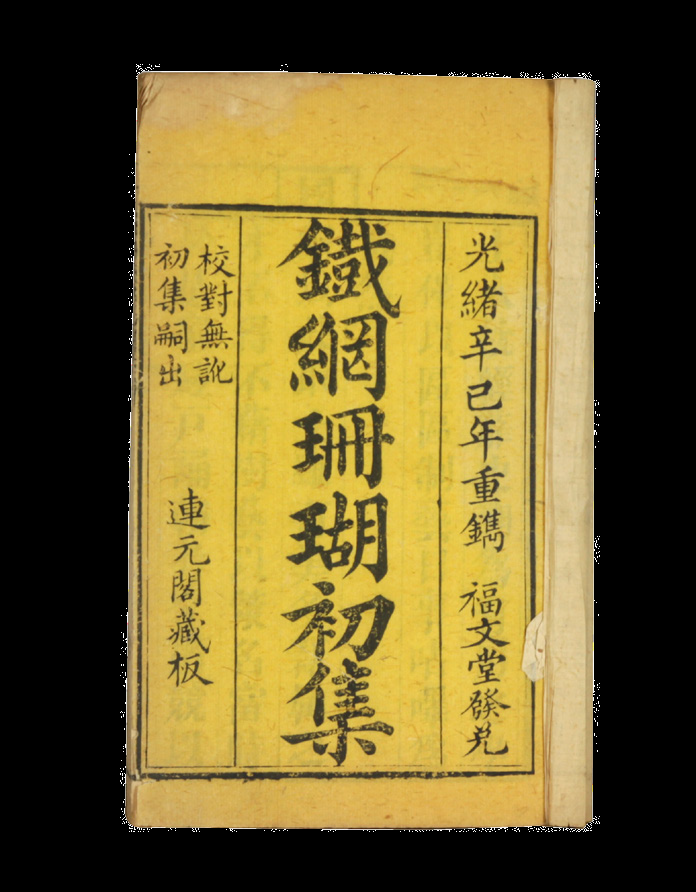 光緒辛巳年重鐫 福文堂發兌
鐵網珊瑚初集
校對無訛
初集嗣出
連元閣藏板